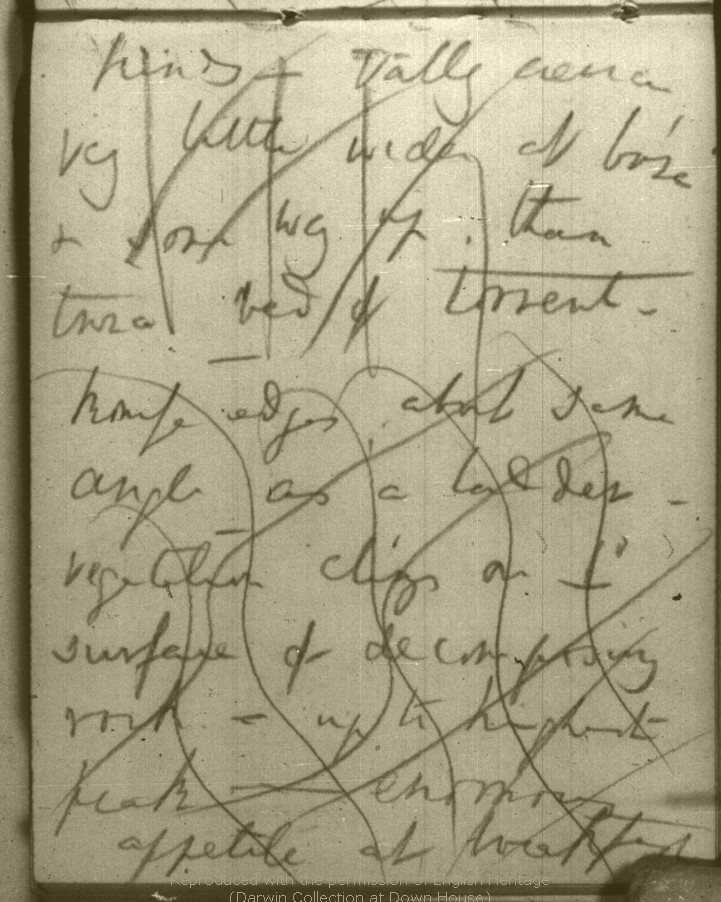 kinds — Vally
very little wider at base
& some way up, than
bed of torrent —
Knife edges, about same
angle as a ladder —
vegetation clings on
surface of decomposing
rock — up to highest
peak — enormous
appetite at breakfast
Reproduced with the permission of English Heritage
(Darwin Collection at Down House)